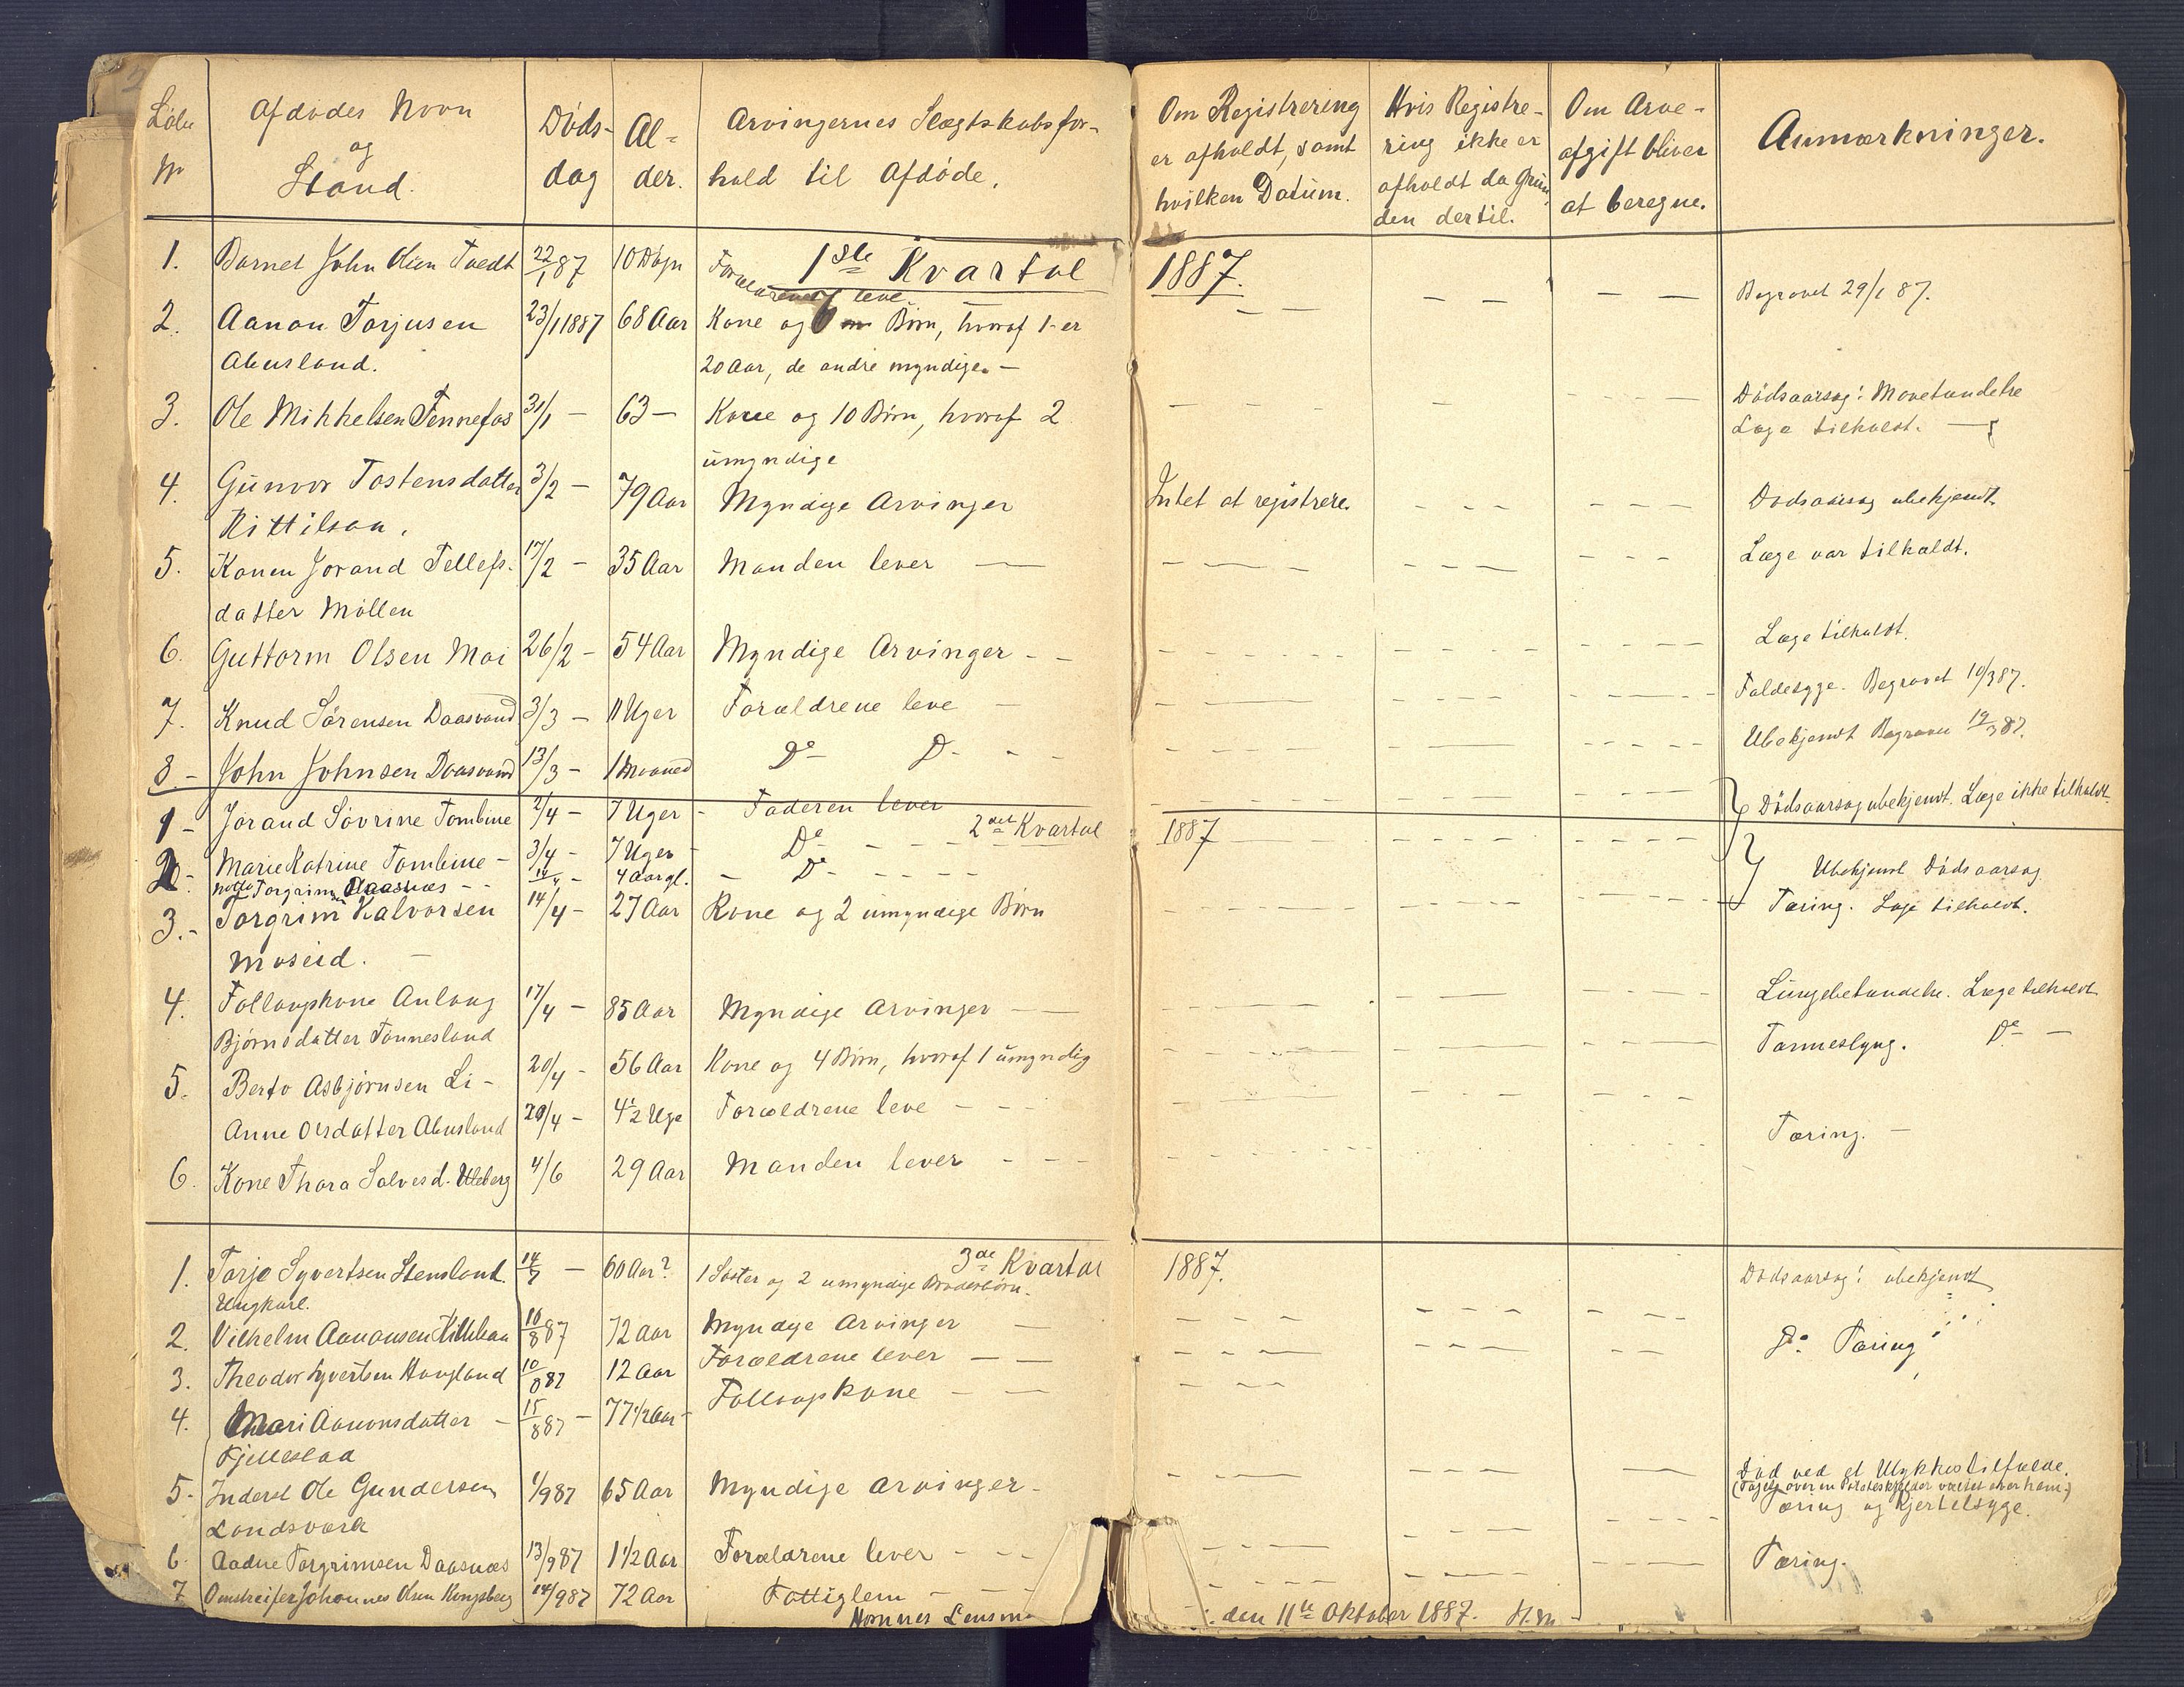 Löbe Nr
Afdødes Navn og Stand.
Døds- dag
Al- der.
Arvingernes Slægtskabsfor- hold til Afdøde.
Om Registrering er afholdt, samt hvilken Datum.
Hvis Registre- ring ikke er afholdt da Grün- den dertil.
Om Arve- afgift bliver at beregne.
Anmærkninger.
1ste Kvartal 1887.
1. Barnet John Olsen Tvedt 22/1 87 10 Døgn Forældrene leve — — Begravet 29/1 87.
2. Aanon Torjusen 23/1 1887 68 Aar Kone og 6 Børn, hvoraf 1 er
Abusland. 20 Aar, de andre myndige. —
3. Ole Mikkelsen Fennefos 31/1 — 63 — Kone og 10 Børn, hvoraf 2 Dødsaarsag: Mavebetændelse
umyndige Læge tilkaldt. —
4. Gunvor Tostensdatter 3/2 — 79 Aar Myndige Arvinger Intet at registrere. Dødsaarsag ubekjendt.
Kittilsaa.
5. Konen Jorand Tellefs- 17/2 — 35 Aar Manden lever — Læge var tilkaldt.
datter Möllen
6. Guttorm Olsen Moi 26/2 — 54 Aar Myndige Arvinger - - Læge tilkaldt.
7. Knud Sørensen Daasvand 3/3 — 11 Uger Forældrene leve — Faldesyge. Begravet 10/3 87.
8 - John Johnsen Daasvand 13/3 — 1 Maaned Do D - - Ubekjendt Begravet 19/3 87.
2det Kvartal 1887
1 - Jorand Sovrine Tombine 2/4 — 7 Uger - Faderen lever Dødsaarsag ubekjendt. Læge ikke tilkaldt.
2 - Marie Katrine Tombine - 3/4 - 7 Uger - Do
Torgrimsen Daasnæs - - 14/4 - 4 Aar gl. - Do - - - Ubekjendt Dødsaarsag
3. - Torgrim Halvorsen 14/4 - 27 Aar Kone og 2 umyndige Børn Tæring. Læge tilkaldt.
Moseid. —
4. Follaugskone Anlaug 17/4 — 85 Aar Myndige Arvinger — Lungebetændelse. Læge tilkaldt
Bjørnsdatter Tønnesland
5. Berto Asbjørnsen Li - 20/4 - 56 Aar Kone og 4 Børn, hvoraf 1 umyndig Do —
Anne Olsdatter Abusland 20/4 - 4 1/2 Uge Forældrene leve - - -
6. Kone Thora Salvesd. Uleberg 4/6 29 Aar Manden lever - - - Tæring. —
3de Kvartal 1887.
1. Tarje Syvertsen Stensland. 14/7 — 60 Aar? 1 Søster og 2 umyndige Broderbørn. Dødsaarsag: ubekjendt
Ungkarl.
2. Vilhelm Aanonsen Kittilsaa 10/8 87 72 Aar Myndige Arvinger — Do Tæring
3. Theodor Syvertsen Haugland 10/8 87 12 Aar Forældrene lever — —
4. Mari Aanonsdatter - 15/8 87 - 77 1/2 Aar - Follaugskone - —
Fjelleslaa
5 - Inderst Ole Gundersen 1/9 87 65 Aar Myndige Arvinger - Død ved et Ulykkestilfælde.
Landsværk
Tæring og Kjertelsyge.
6. Aadne Torgrimsen Daasnæs 13/9 87 1 1/2 Aar Forældrene lever - - - Tæring.
7 Omstreifer Johannes Olsen Kongsberg 14/9 87 72 Aar Fattiglem - - - -
Hornnes Lensm
den 11te Oktober 1887. H.M.